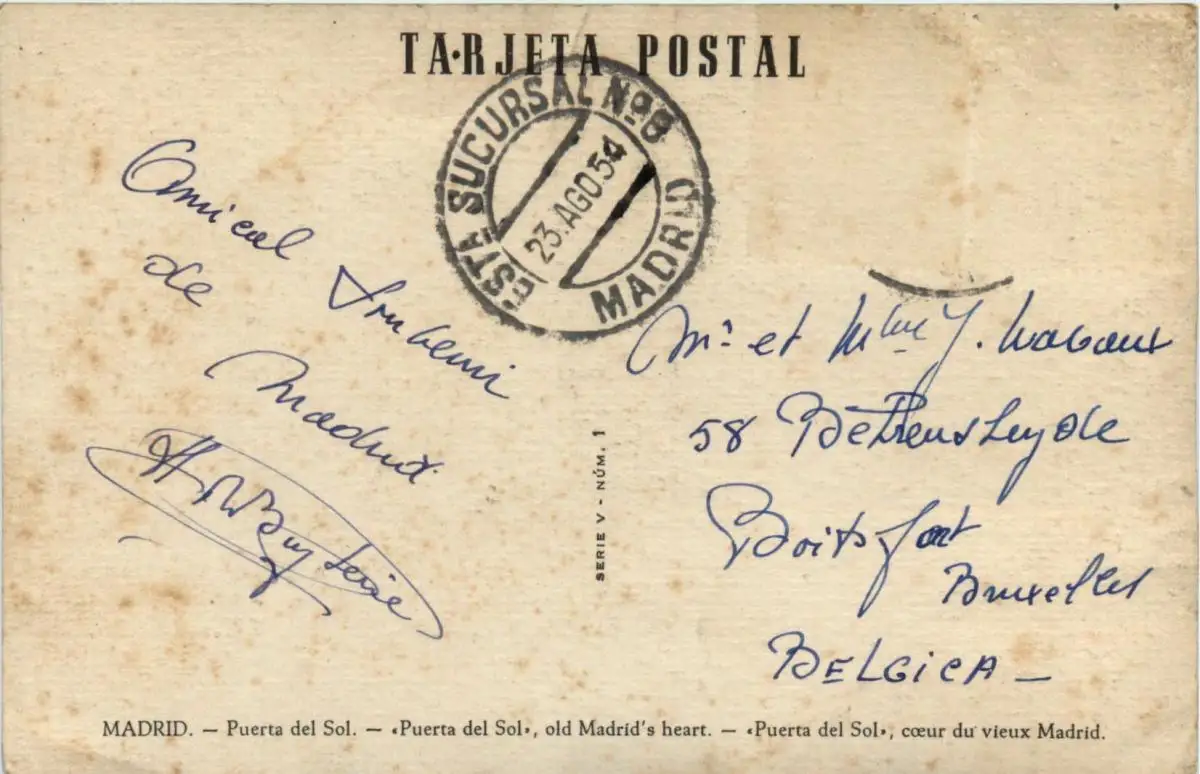 TARJETA POSTAL
ESTA SUCURSAL Nº 8
MADRID
23.AGO.54
Amical
de
Madrid
Mr et Mme J.
58
Boitsfort
Bruxelles
BELGICA —
SERIE V - NÚM. 1
MADRID. — Puerta del Sol. — «Puerta del Sol», old Madrid's heart. — «Puerta del Sol», cœur du vieux Madrid.